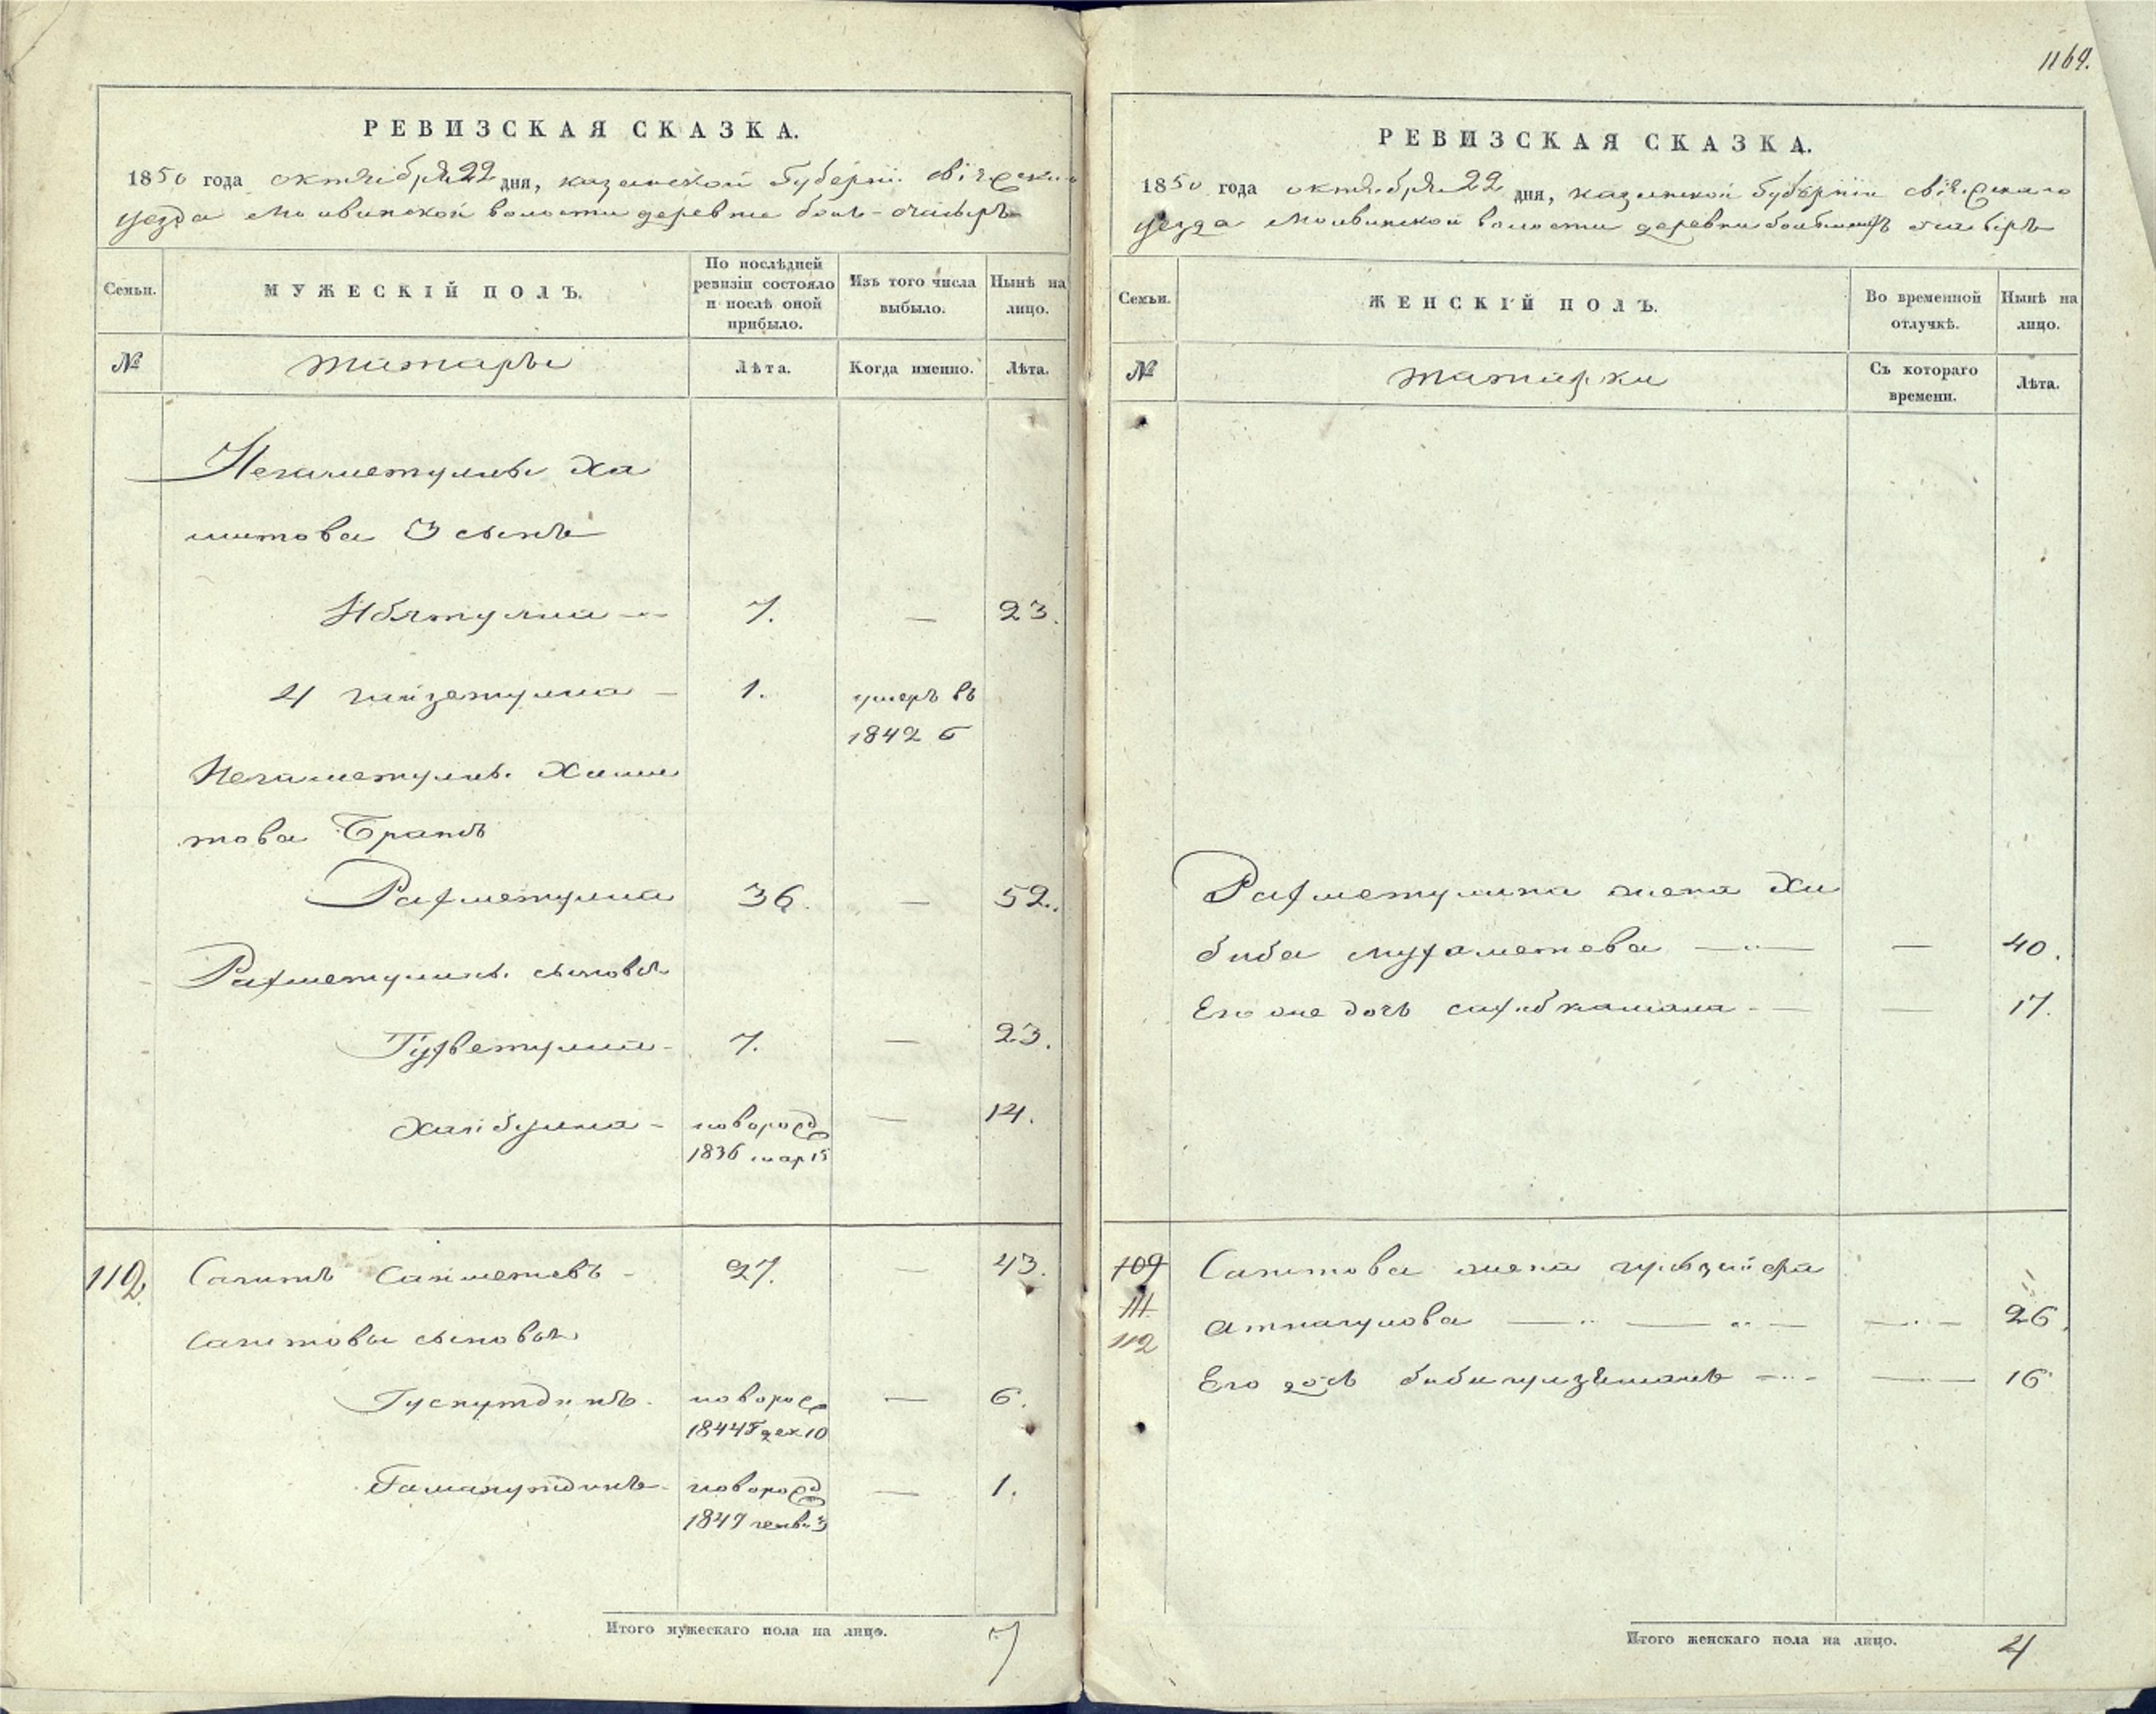 РЕВИЗСКАЯ СКАЗКА.
1850 года октября 22 дня, казанской Губерніи свіяжскаго
уезда Молвинской волости деревни
Семьи.
МУЖЕСКІЙ ПОЛЪ.
По послѣдней ревизіи состояло и послѣ оной прибыло.
Изъ того числа выбыло.
Нынѣ на лицо.
№
татары
Лѣта.
Когда именно.
Лѣта.
Негаметуллы Ха
митова 3 сынъ
Ибятулла 7. — 23.
4 гайзетулла — 1. умеръ въ
1842 г
Негаметуллы Хами
това Братъ
Рахметулла 36. — 52.
Рахметуллы сыновья
7. — 23.
Хайбулла — новорожд — 14.
1836 мар 15
112. Сагитъ Саиметевъ — 27. — 43.
Сагитовы сыновья
новорож — 6.
1844 г дек 10
новорожд — 1.
генв. 3
Итого мужескаго пола на лицо. 7
1169.
РЕВИЗСКАЯ СКАЗКА.
1850 года октября 22 дня, казанской Губерніи свіяжскаго
уезда Молвинской волости деревни
Семьи.
ЖЕНСКІЙ ПОЛЪ.
Во временной отлучкѣ.
Нынѣ на лицо.
№
татарки
Съ котораго времени.
Лѣта.
Рахметуллина жена Хи
биба мухаметева — — 40.
Его же дочь — — 17.
109 Сагитова жена
111
112 Атнагулова — — 26.
Его дочь — — 16
Итого женскаго пола на лицо. 4